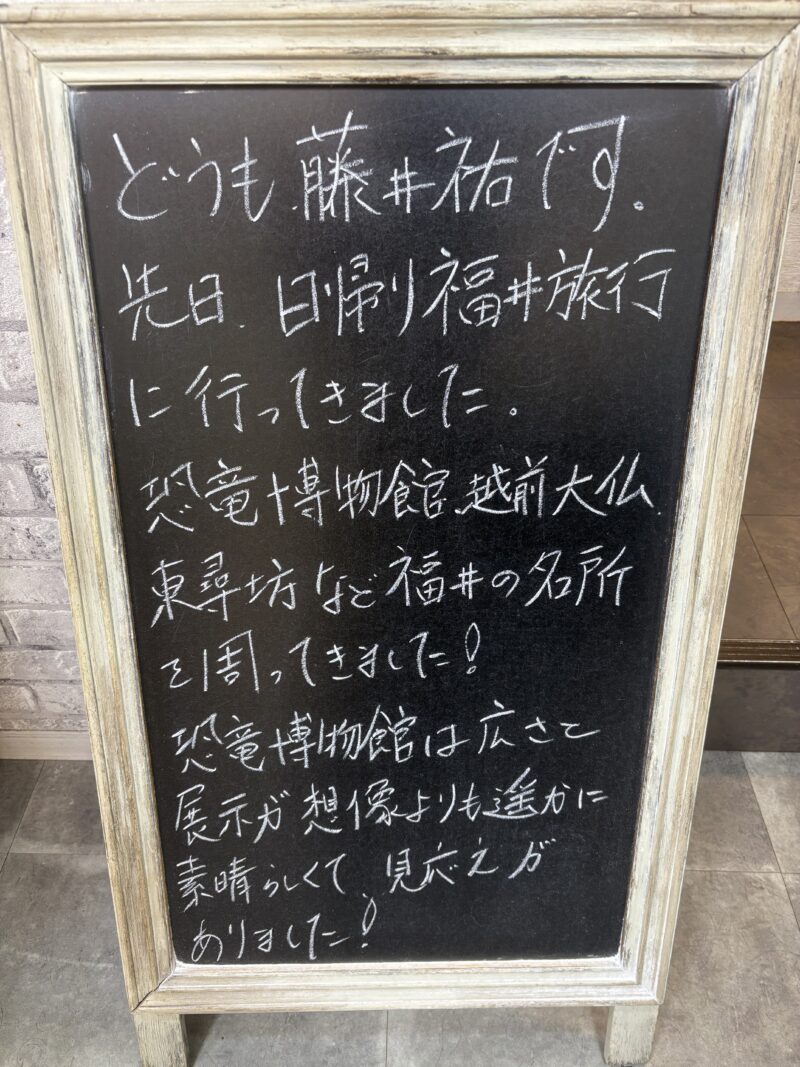 どうも、藤井祐です。
先日、日帰り福井旅行
に行ってきました。
恐竜博物館、越前大仏、
東尋坊など福井の名所
を周ってきました!
恐竜博物館は広さと
展示が想像よりも遥かに
素晴らしくて、見応えが
ありました!